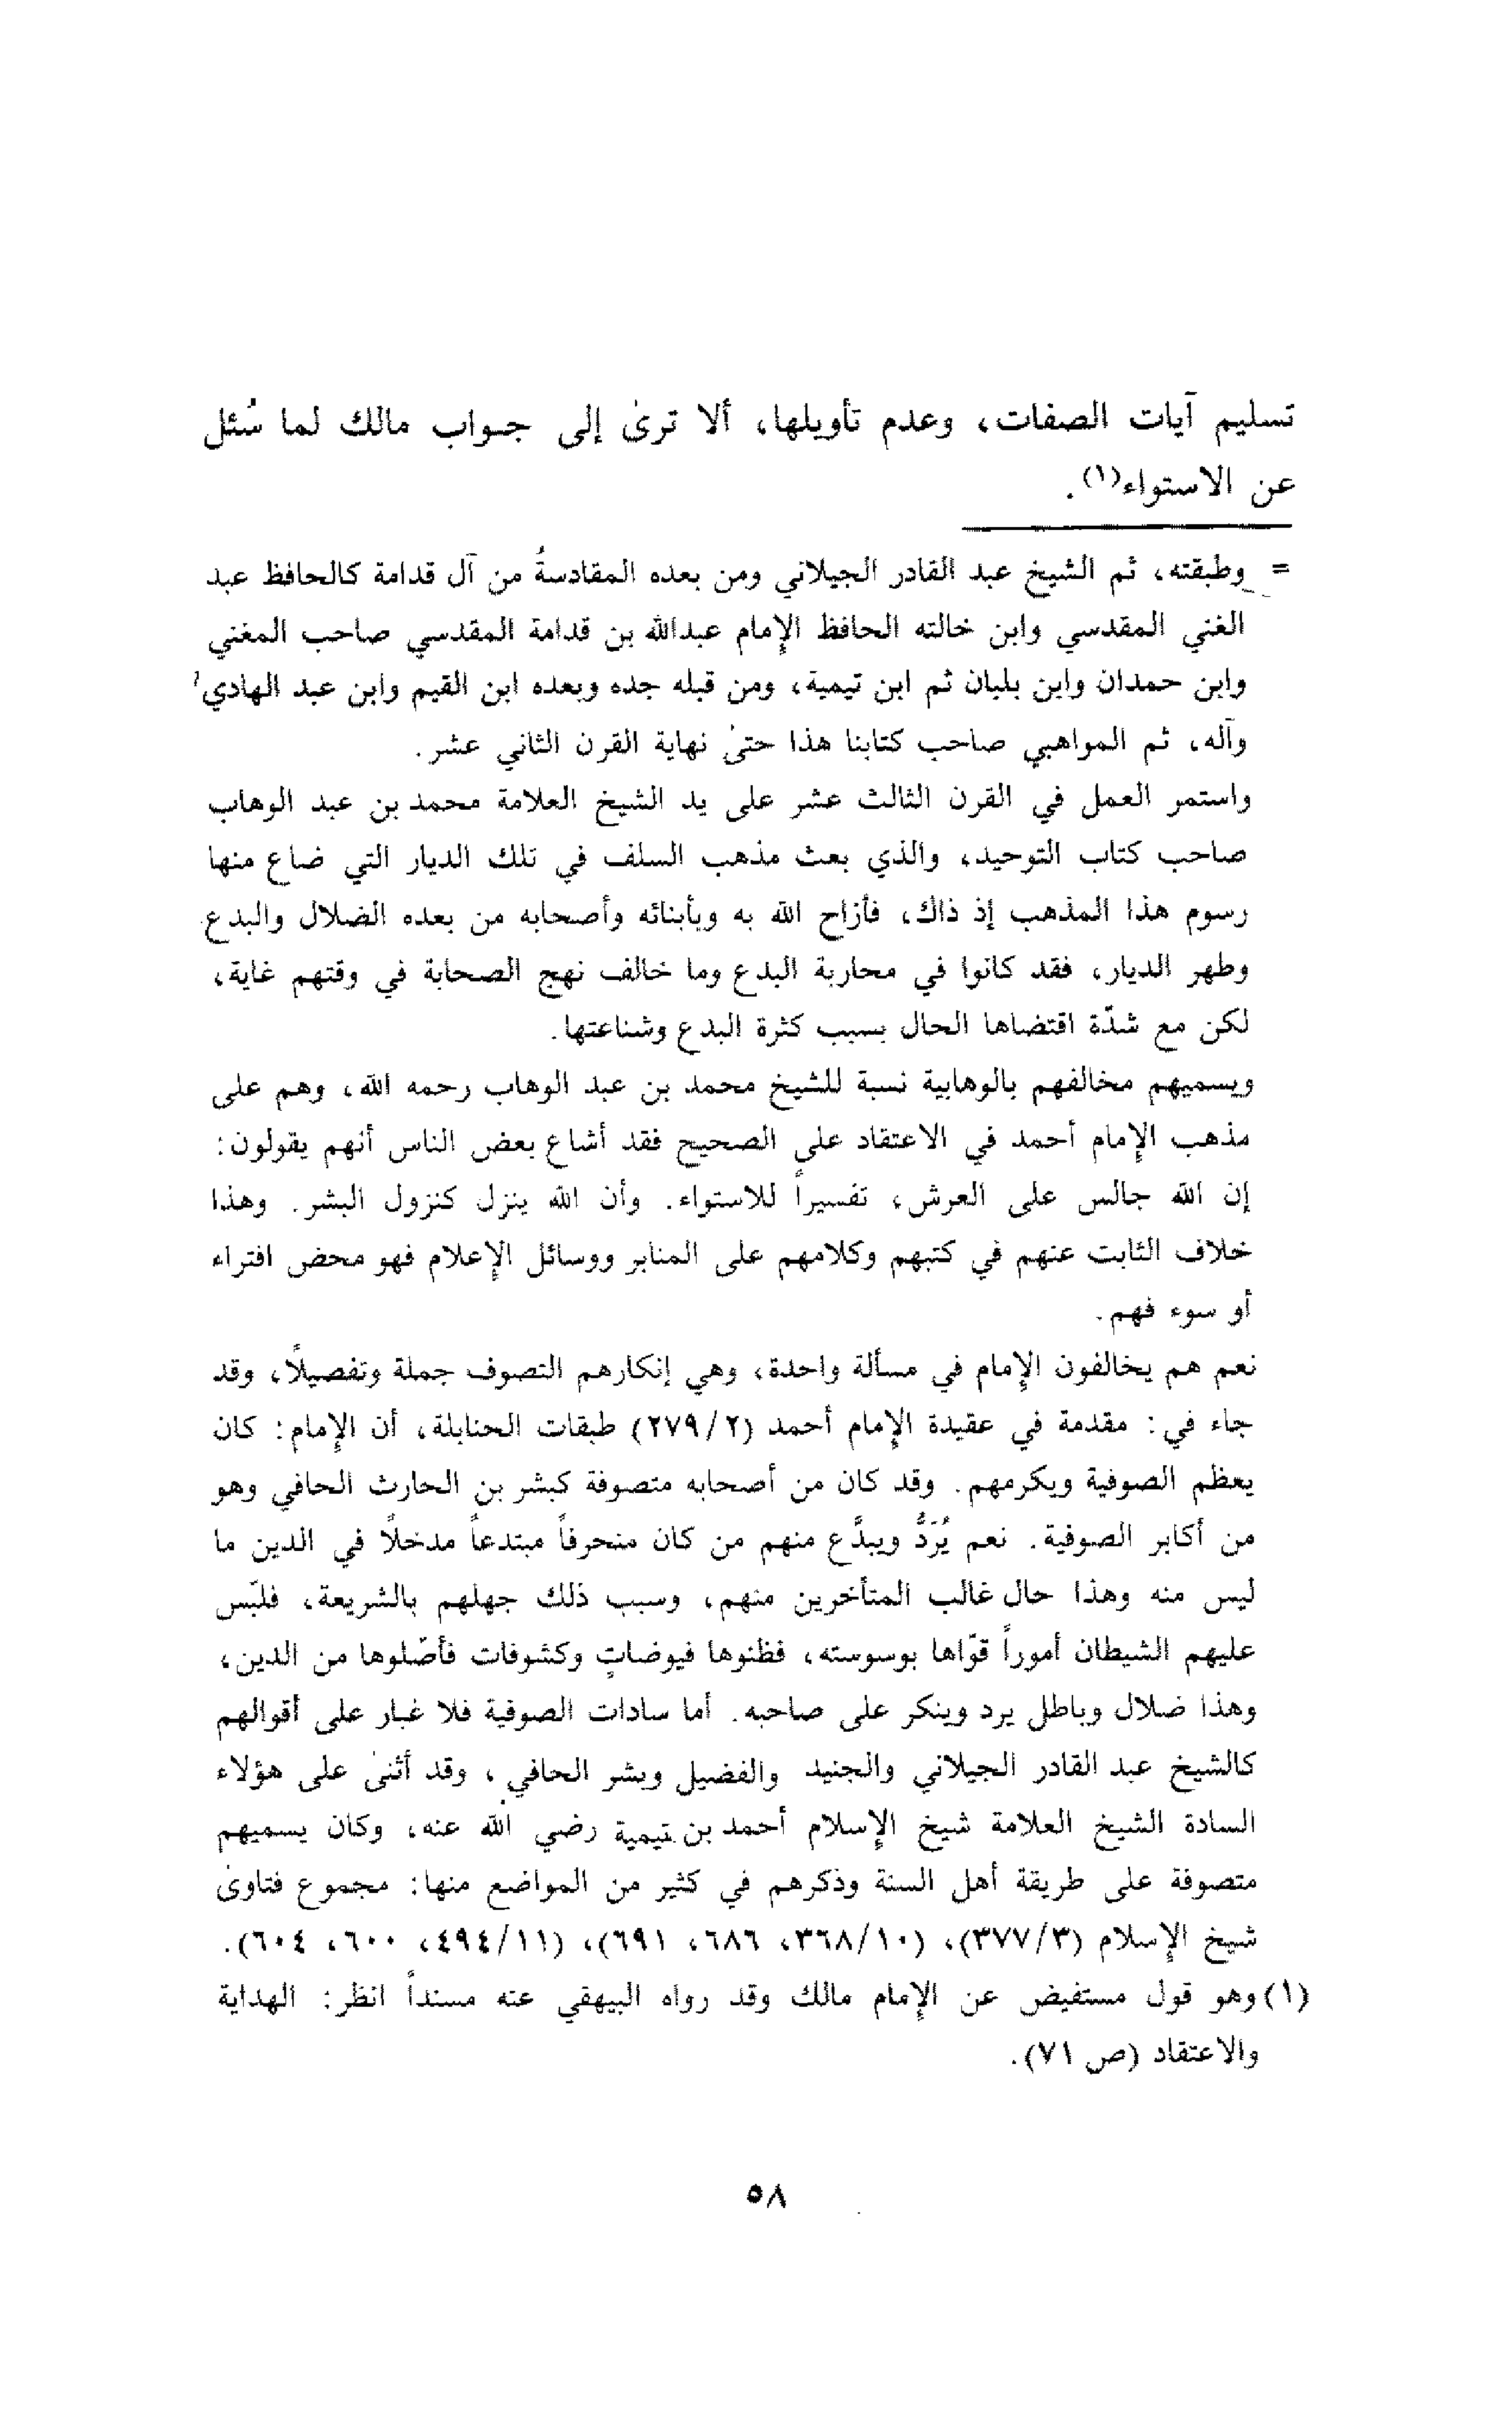 تسليم آيات الصفات، وعدم تأويلها، ألا ترىٰ إلى جـواب مالك لما سُئل
عن الاستواء(١).
= وطبقته، ثم الشيخ عبد القادر الجيلاني ومن بعده المقادسةُ من آل قدامة كالحافظ عبد
الغني المقدسي وابن خالته الحافظ الإمام عبدالله بن قدامة المقدسي صاحب المغني
وابن حمدان وابن بلبان ثم ابن تيمية، ومن قبله جده وبعده ابن القيم وابن عبد الهادي
وآله، ثم المواهبي صاحب كتابنا هذا حتىٰ نهاية القرن الثاني عشر.
واستمر العمل في القرن الثالث عشر على يد الشيخ العلامة محمد بن عبد الوهاب
صاحب كتاب التوحيد، والذي بعث مذهب السلف في تلك الديار التي ضاع منها
رسوم هذا المذهب إذ ذاك، فأزاح الله به وبأبنائه وأصحابه من بعده الضلال والبدع
وطهر الديار، فقد كانوا في محاربة البدع وما خالف نهج الصحابة في وقتهم غاية،
لكن مع شدّة اقتضاها الحال بسبب كثرة البدع وشناعتها.
ويسميهم مخالفهم بالوهابية نسبة للشيخ محمد بن عبد الوهاب رحمه الله، وهم على
مذهب الإمام أحمد في الاعتقاد على الصحيح فقد أشاع بعض الناس أنهم يقولون:
إن الله جالس على العرش، تفسيراً للاستواء. وأن الله ينزل كنزول البشر. وهذا
خلاف الثابت عنهم في كتبهم وكلامهم على المنابر ووسائل الإعلام فهو محض افتراء
أو سوء فهم.
نعم هم يخالفون الإمام في مسألة واحدة، وهي إنكارهم التصوف جملة وتفصيلاً، وقد
جاء في: مقدمة في عقيدة الإمام أحمد (٢/٢٧٩) طبقات الحنابلة، أن الإمام: كان
يعظم الصوفية ويكرمهم. وقد كان من أصحابه متصوفة كبشر بن الحارث الحافي وهو
من أكابر الصوفية. نعم يُرَدُّ ويبدَّع منهم من كان منحرفاً مبتدعاً مدخلاً في الدين ما
ليس منه وهذا حال غالب المتأخرين منهم، وسبب ذلك جهلهم بالشريعة، فلبّس
عليهم الشيطان أموراً قوّاها بوسوسته، فظنوها فيوضاتٍ وكشوفات فأصّلوها من الدين،
وهذا ضلال وباطل يرد وينكر على صاحبه. أما سادات الصوفية فلا غبار على أقوالهم
كالشيخ عبد القادر الجيلاني والجنيد والفضيل وبشر الحافي، وقد أثنىٰ على هؤلاء
السادة الشيخ العلامة شيخ الإسلام أحمد بن تيمية رضي الله عنه، وكان يسميهم
متصوفة على طريقة أهل السنة وذكرهم في كثير من المواضع منها: مجموع فتاوىٰ
شيخ الإسلام (٣/٣٧٧)، (١٠/٣٦٨، ٦٨٦، ٦٩١)، (١١/٤٩٤، ٦٠٠، ٦٠٤).
(١) وهو قول مستفيض عن الإمام مالك وقد رواه البيهقي عنه مسنداً انظر: الهداية
والاعتقاد (ص ٧١).
٥٨